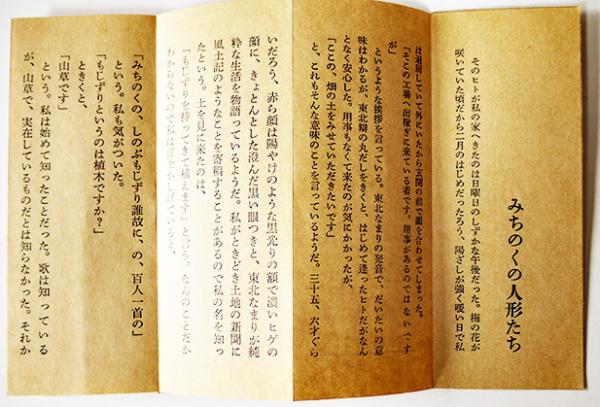 みちのくの人形たち
そのヒトが私の家へきたのは日曜日のしずかな午後だった。梅の花が
咲いていた頃だから二月のはじめだったろう、陽ざしが強く暖い日で私
は退屈していて外にいたから玄関の前で顔を合わせてしまった。
「そこの工場へ出稼ぎに来ている者です。用事があるのではないです
が」
というような挨拶を言っている。東北なまりの発音で、だいたいの意
味はわかるが、東北辯の丸だしをきくと、はじめて逢ったヒトだがなん
となく安心した。用事もなくて来たのが気にかかったが、
「ここの、畑の土をみせていただきたいです」
と、これもそんな意味のことを言っているようだ。三十五、六才ぐら
いだろう、赤ら顔は陽やけのような黒光りの額で濃いヒゲの
顔に、きょとんとした澄んだ黒い眼つきと、東北なまりが純
粋な生活を物語っているようだ。私がときどき土地の新聞に
風土記のようなことを寄稿することがあるので私の名を知っ
たという。土を見に来たのは、
「もじずりを持ってきて植えます」と言う。なんのことだか
わからないので私は首をかしげていると、
「みちのくの、しのぶもじずり誰故に、の、百人一首の」
という。私も気がついた。
「もじずりというのは植木ですか？」
ときくと、
「山草です」
という。私は始めて知ったことだった。歌は知っている
が、山草で、実在しているものだとは知らなかった。それか